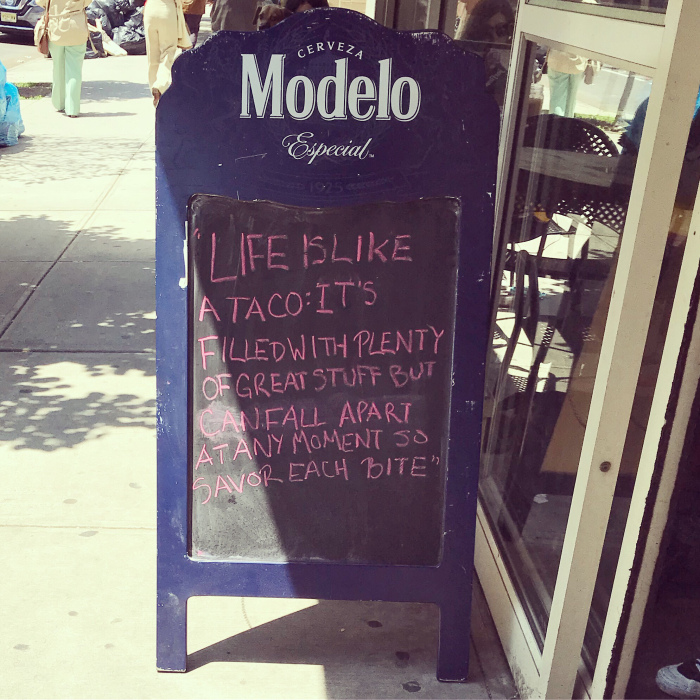 CERVEZA
Modelo
Especial™
1925
"LIFE IS LIKE
A TACO: IT'S
FILLED WITH PLENTY
OF GREAT STUFF BUT
CAN FALL APART
AT ANY MOMENT SO
SAVOR EACH BITE"